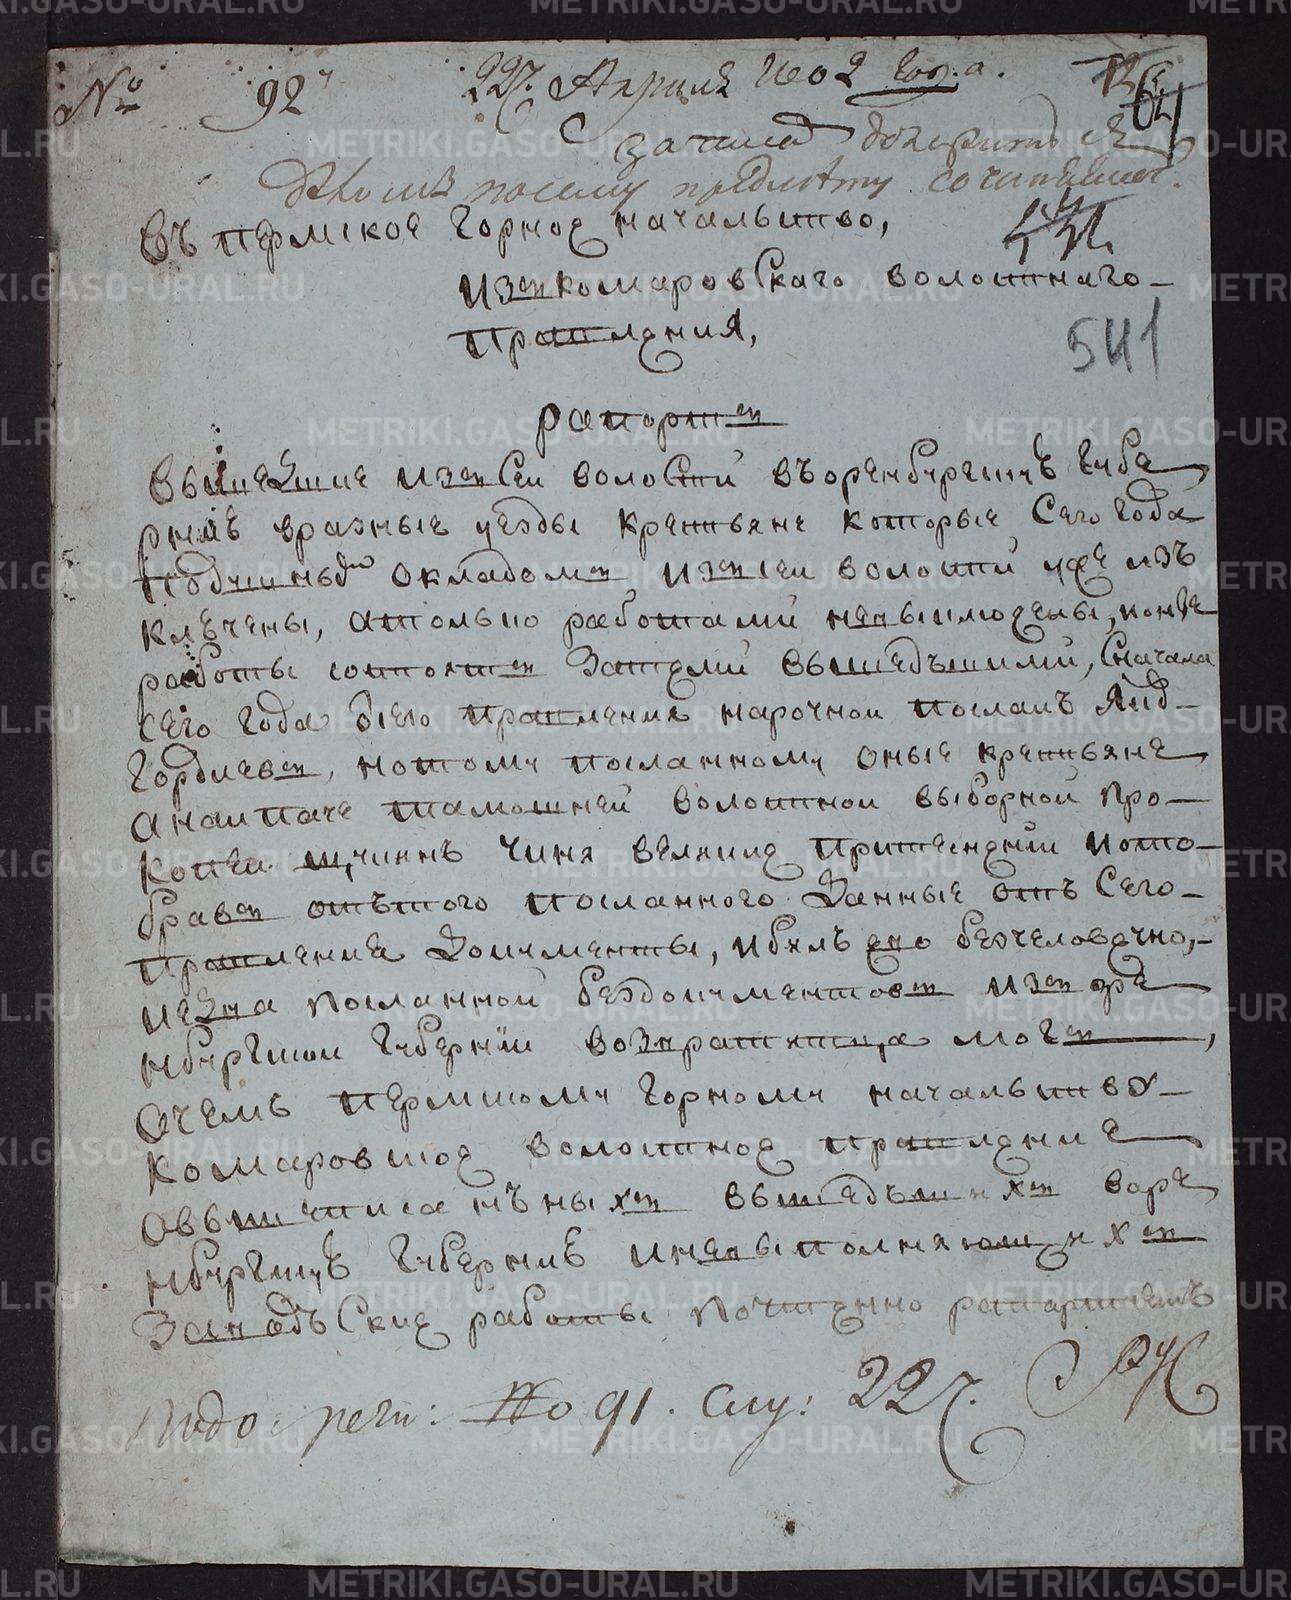 № 92
22. Апреля 1802 года.
541
Въ пермское горное начальство,
изъ комаровскаго волостнаго
правления,
рапортъ
Вышедшие изъ сей волости въ оренбургскую губе
рнию вразные уезды крестьяне которые сего года
подушнымъ окладомъ изъ сей волости уже изъ
ключены, а только работами невыключены, кои же
работы состоятъ затеми вышедъшими, сначала
сего года бсего правления нарочной посланъ
Гордиевъ, но тому посланному оные крестьяне
а наипаче тамошней волостной выборной Про
копей чиня великие притеснении и ото
бравъ отътого посланного данные отъ сего
правления документы, и билъ ево безчеловечно,
ис чего посланной бездокументовъ изъ оре
нбургской губернии возвратится могъ,
о чемъ пермскому горному начальству
комаровское волостное правление
о вышеписанъныхъ вышедъшихъ воре
нбургскую губернию и невыполняющихъ
заводъские работы почтенно рапортуетъ
№ 91. слу: 22
METRIKI.GASO-URAL.RU